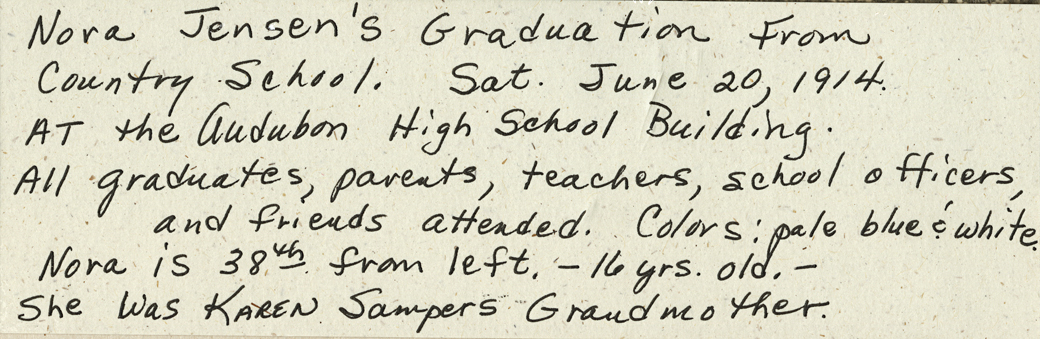 Nora Jensen's Graduation From
Country School. Sat. June 20, 1914.
AT the Audubon High School Building.
All graduates, parents, teachers, school officers,
and friends attended. Colors: pale blue & white.
Nora is 38th from left. - 16 yrs. old. -
She Was KAREN Sampers Grandmother.